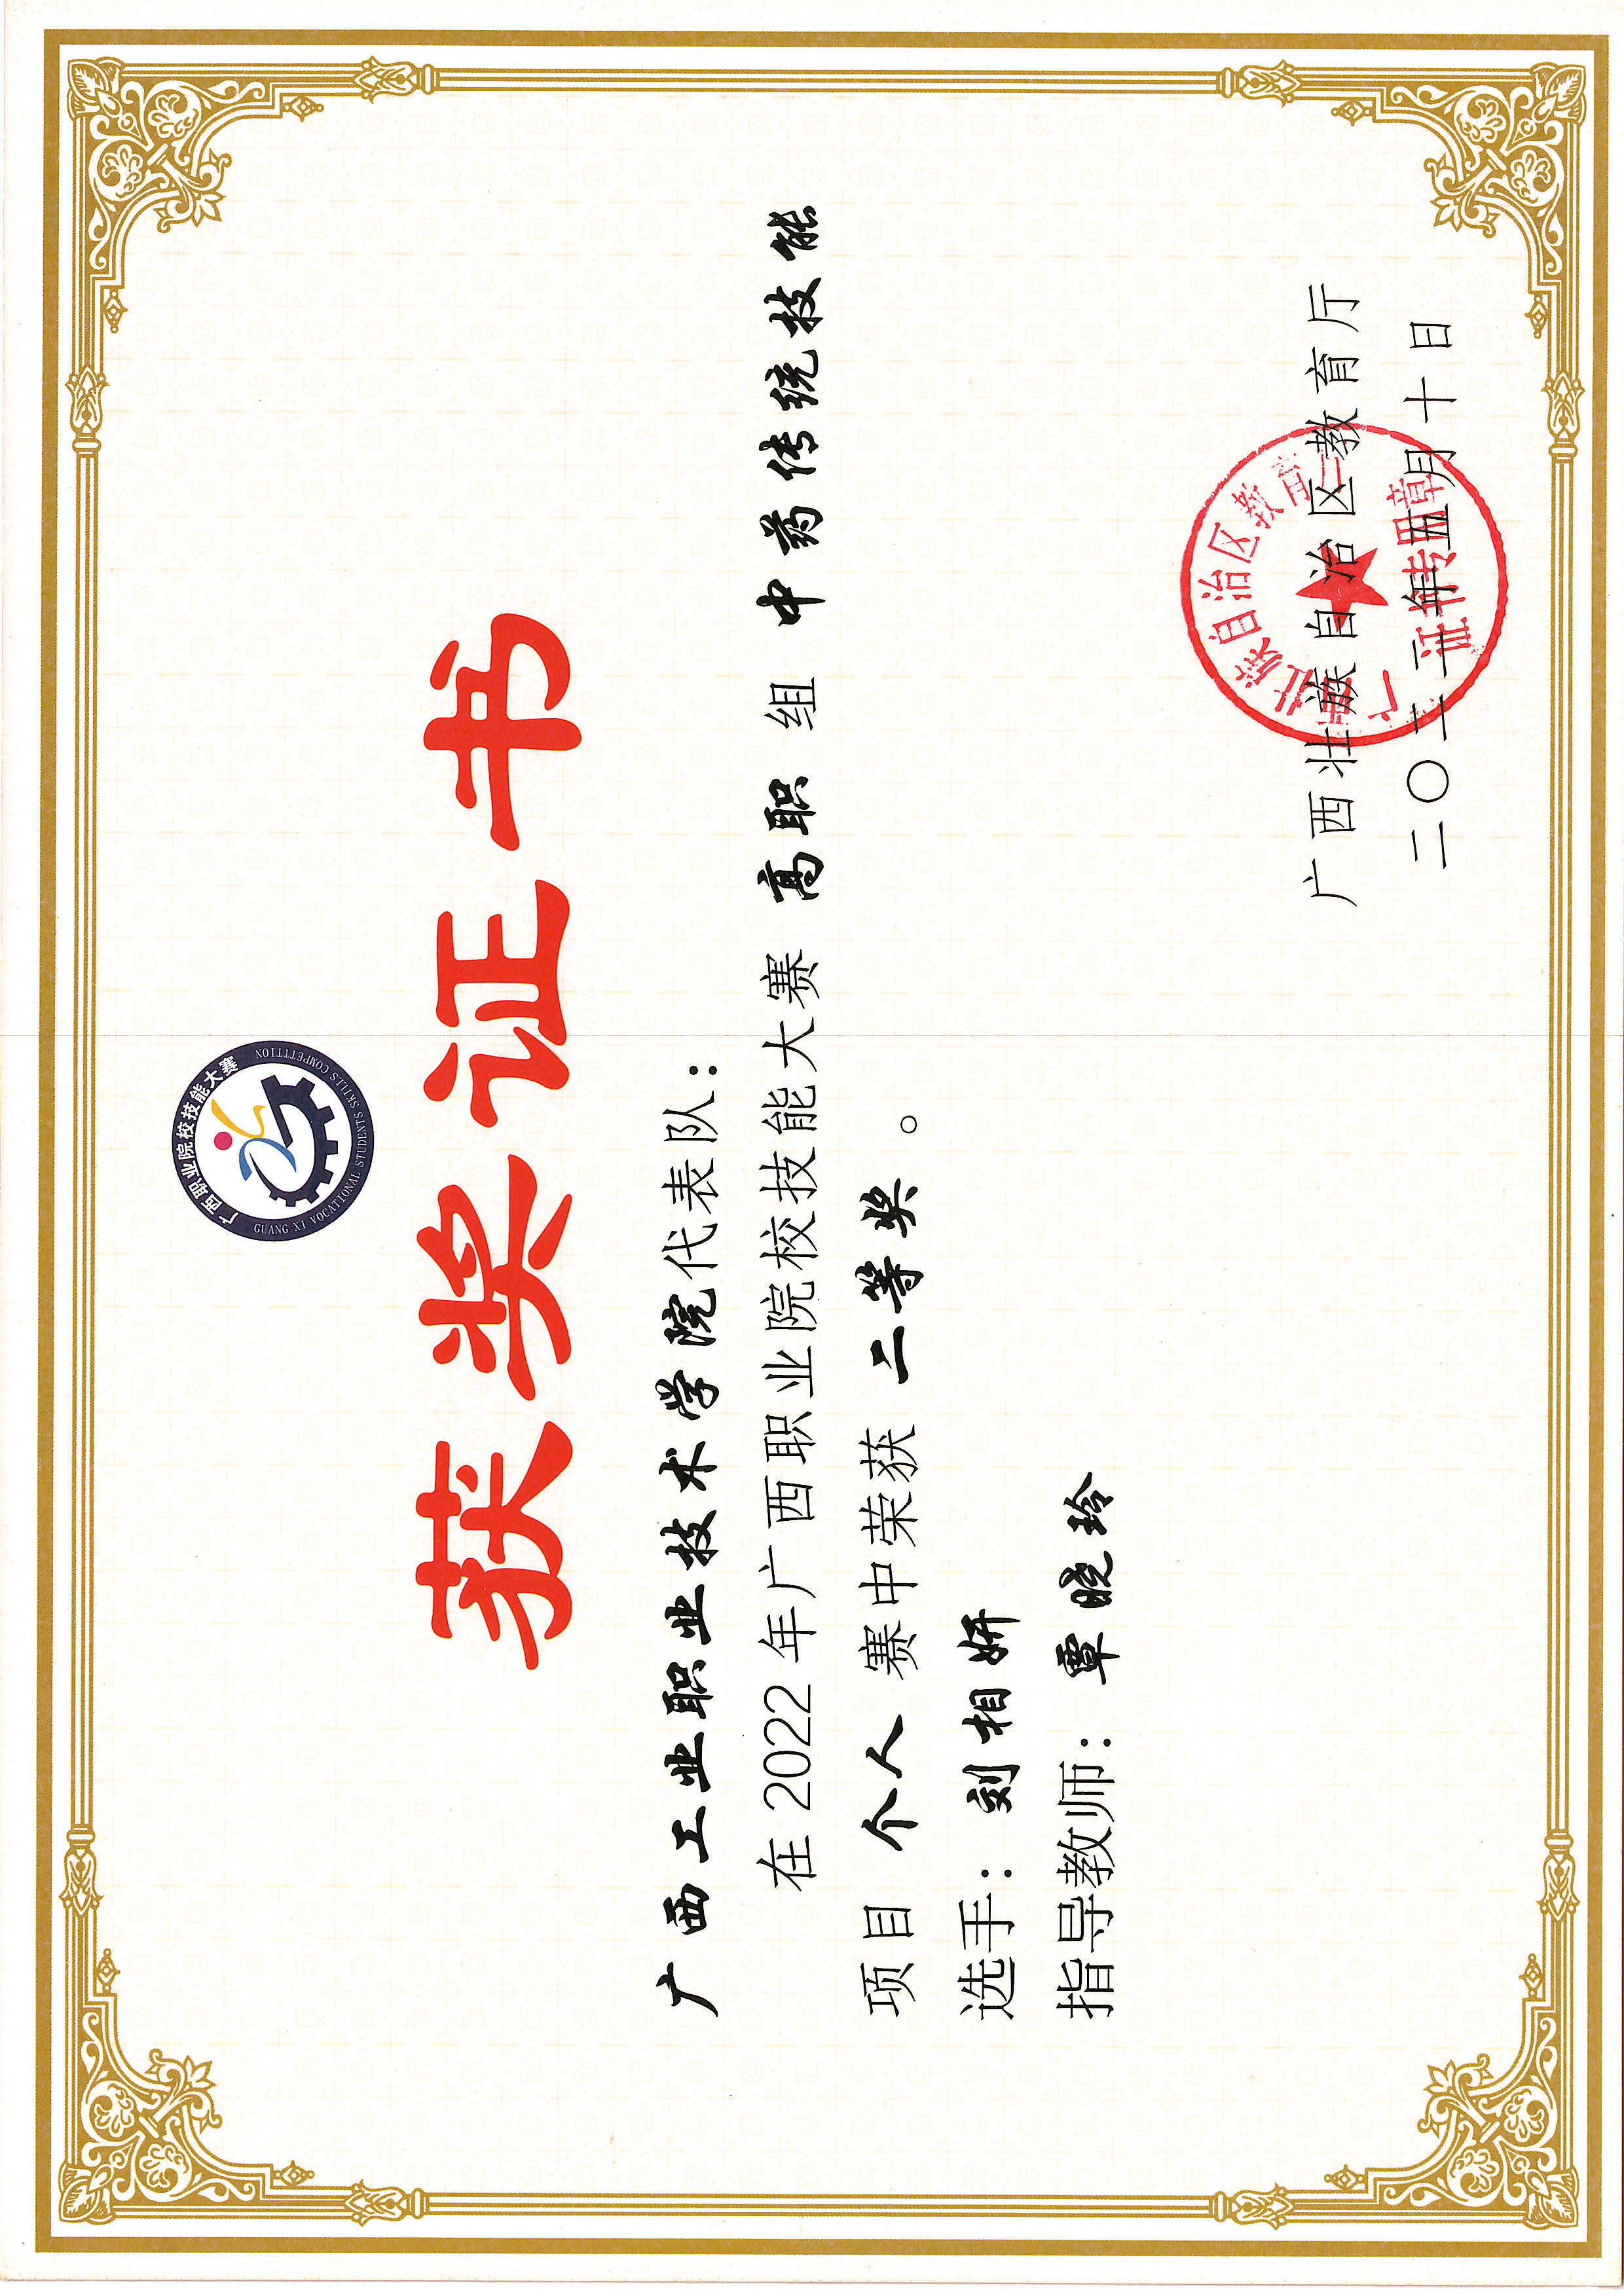 广西职业院校技能大赛
GUANG XI VOCATIONAL STUDENTS SKILLS COMPETITION
获奖证书
广西工业职业技术学院代表队：
在2022年广西职业院校技能大赛 高职 组 中药传统技能
项目 个人 赛中荣获 二等奖 。
选手：刘相妍
指导教师：覃晓玲
广西壮族自治区教育厅
二〇二二年五月十日
广西壮族自治区教育厅
证书专用章